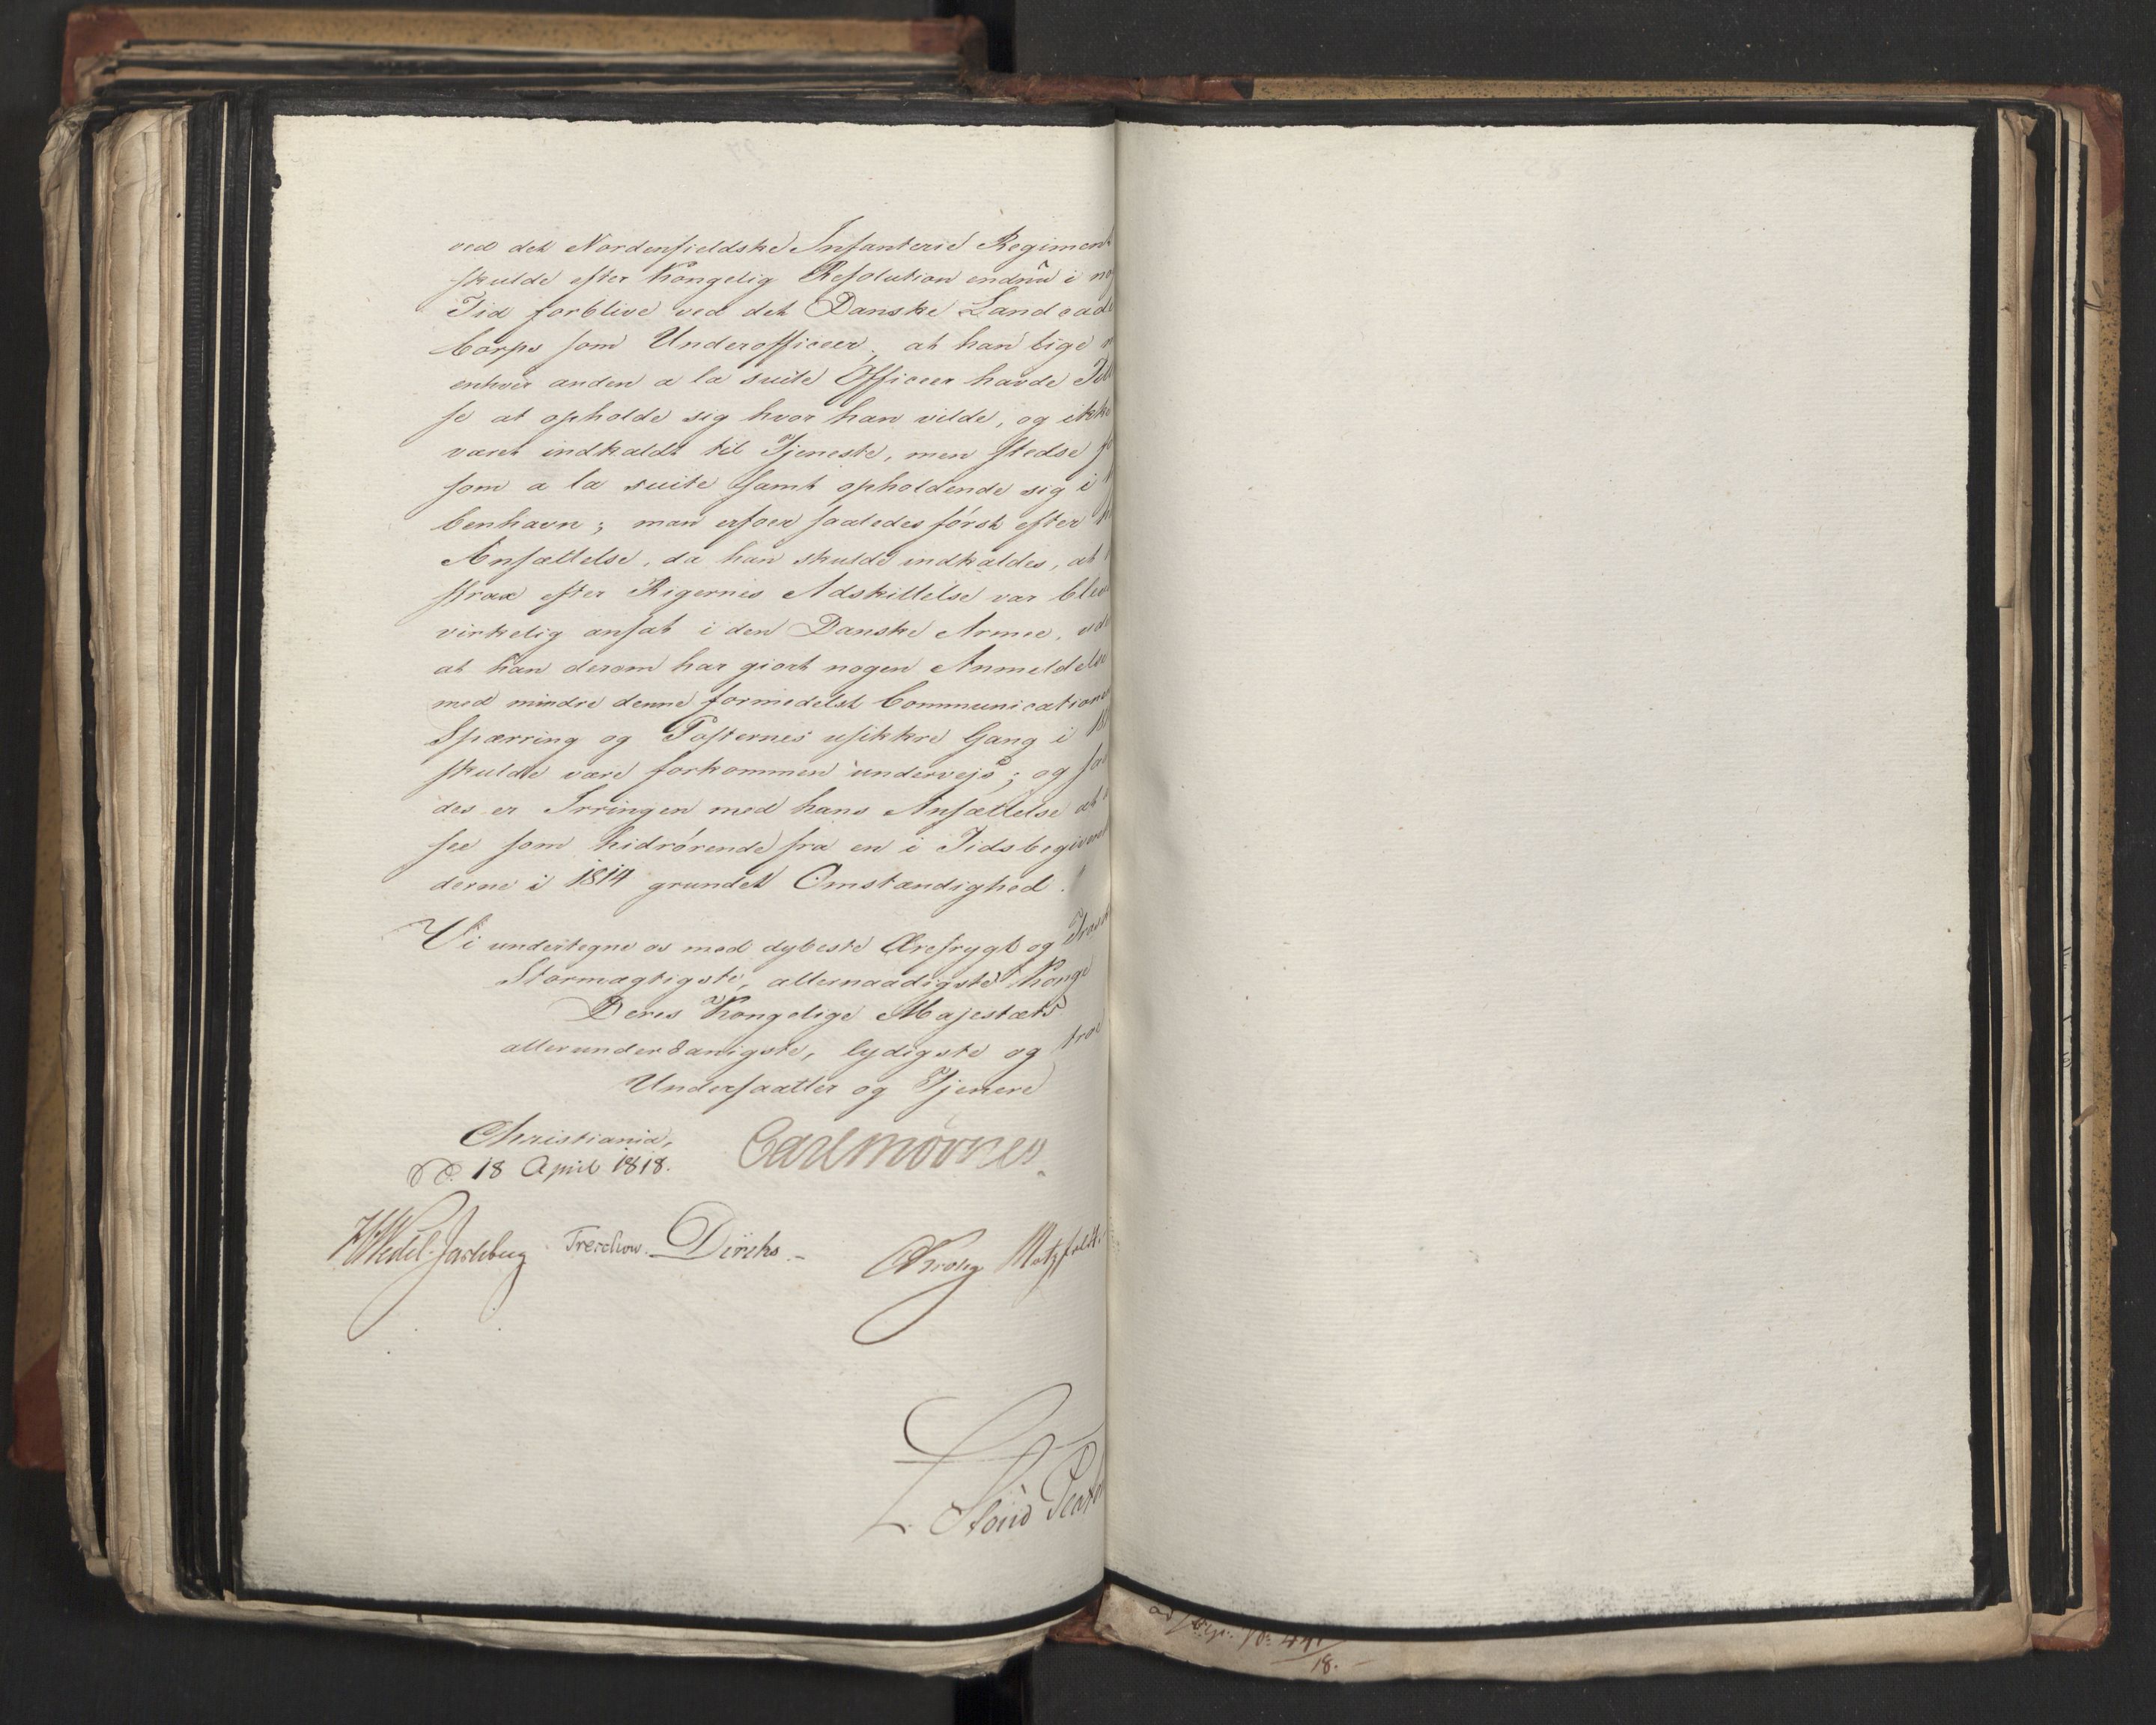 ved det Nordenfieldske Infanterie Regiment
skulde efter Kongelig Resolution endnu i no
Tid forblive ved det Danske Landcade
Corps som Underofficeer, at han lige
enhver anden a la suite Officeer havde Till
se at opholde sig hvor han vilde, og ikke
været indkaldt til Tjeneste, men stedse
som a la suite samt opholdende sig i
benhavn; man erfoer saaledes først efter
Ansættelse, da han skulde indkaldes, at
strax efter Rigernes Adskillelse var blev
virkelig ansat i den Danske Armee, ude
at han derom har giort nogen Anmeldelse
med mindre denne formedelst Communicationen
Spærring og Posternes usikkre Gang i 18
skulde være forkommen underveis; og saa
des er Irringen med hans Ansættelse at
see som hidrørende fra en i Tidsbegiven
derne i 1814 grundet Omstændighed.
Vi undertegne os med dybeste Ærefrygt og Trosk
Stormægtigste, allernaadigste Konge
Deres Kongelige Majestæts
allerunderdanigste, lydigste og troe
Undersaatter og Tjenere
Christiania,
d. 18 April 1818. Carl Mörner
HWedel-Jarlsberg Treschow. Diriks. CKrohg Motzfeldt.
ad Exp. No 441
18.